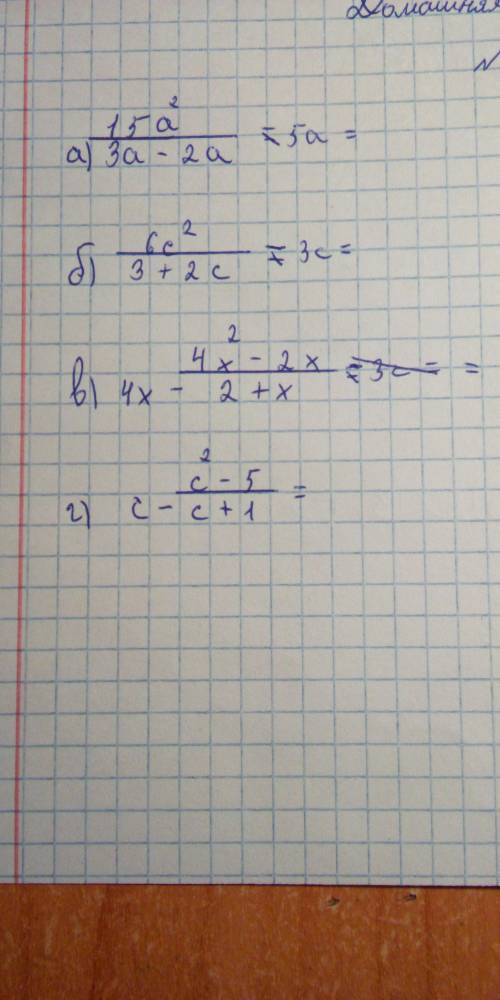 Домашняя
N
а) 15a² / 3a - 2a - 5a =
б) 6c² / 3 + 2c - 3c =
в) 4x - 4x² - 2x / 2 + x =
г) c - c² - 5 / c + 1 =